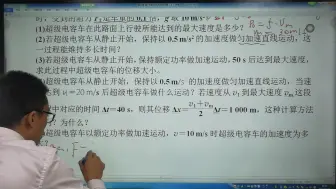 (1)超级电容车在此路面上行驶所能达到的最大速度是多少?
(2)超级电容车从静止开始,保持以 0.5 m/s² 的加速度做匀加速直线运动,这
一过程能维持多长时间?
(3)若超级电容车从静止开始,保持额定功率做加速运动,50 s 后达到最大速度,
求此过程中超级电容车的位移大小。
超级电容车从静止开始,保持以 0.5 m/s² 的加速度做匀加速直线运动,当速
=20 m/s 后超级电容车做什么运动?若速度从 v₁ 到最大速度 vₘ 这段
中对应的时间 Δt=40 s,则其位移 Δx= Δt=1 000 m,这种计算方法
?为什么?
超级电容车以额定功率做加速运动,v=10 m/s 时超级电容车的加速度为多